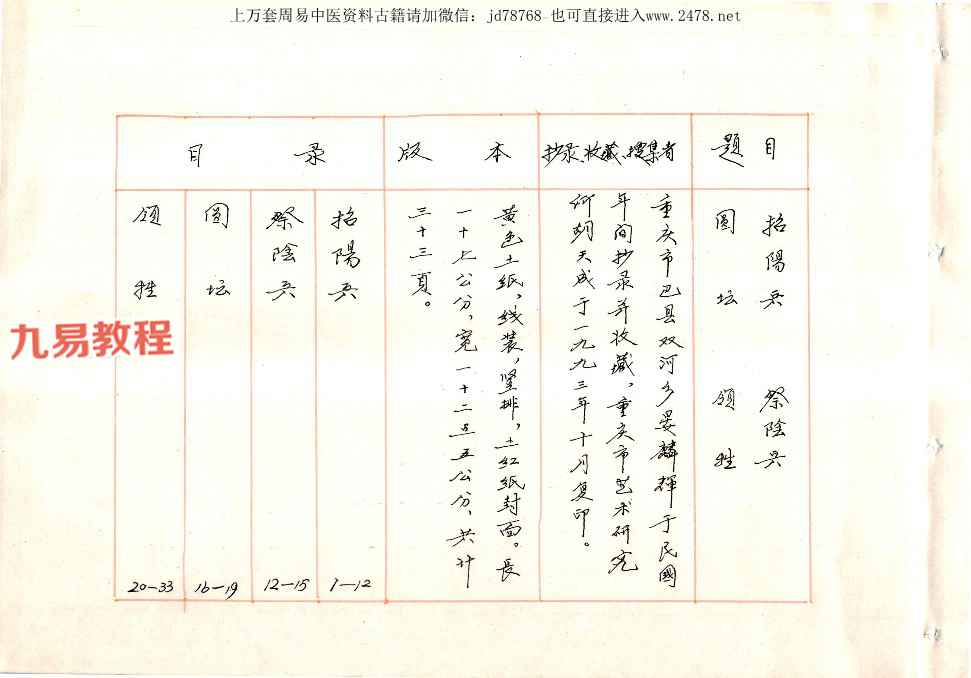 上万套周易中医资料古籍请加微信：jd78768 也可直接进入www.2478.net
題目
招陽兵 祭陰兵
圆坛 領牲
抄录、收藏、搜集者
重庆市巴县双河乡晏麟禪于民國
年间抄录并收藏，重庆市艺术研究
所胡天成于一九九三年十月复印。
版本
黄色土纸，线装，竖排，土红纸封面。長
一十七公分，宽一十二点五公分，共计
三十三頁。
目录
招陽兵 1—12
祭陰兵 12—15
圆坛 16—19
領牲 20—33
九易教程